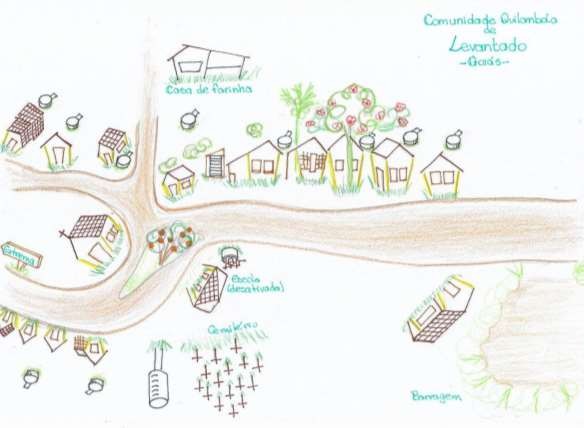 Comunidade Quilombola
de
Levantado
-Goiás-
Casa de farinha
Extrema
Escola
(desativada)
Cemitério
Barragem